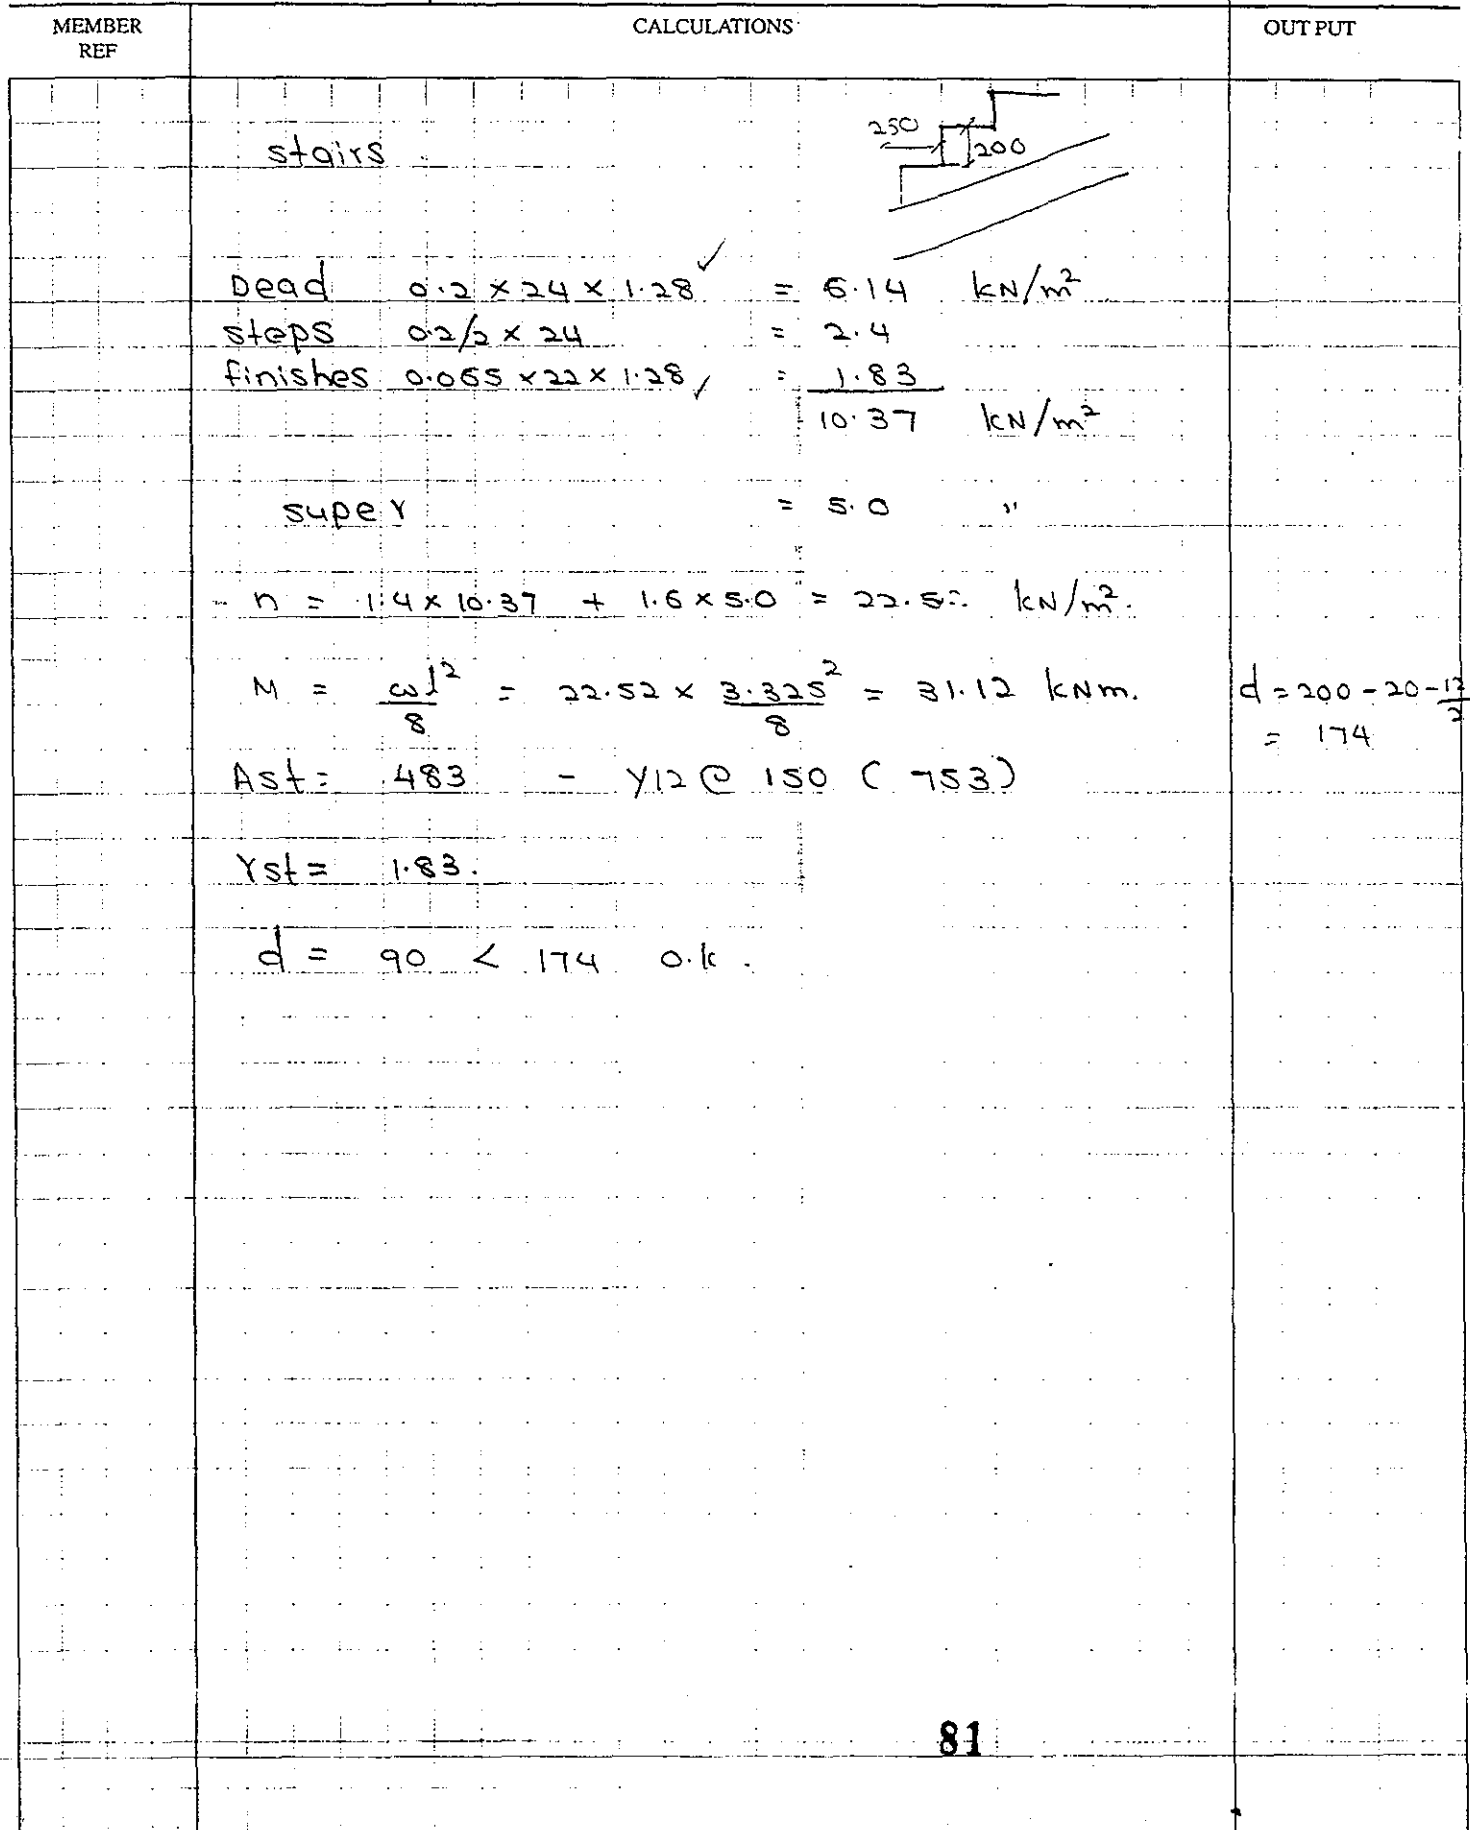 MEMBER REF CALCULATIONS OUT PUT
250
200
stairs
Dead 0.2 × 24 × 1.28 ✓ = 6.14 kN/m²
steps 0.2/2 × 24 = 2.4
finishes 0.065 × 22 × 1.28 ✓ = 1.83
10.37 kN/m²
super = 5.0 "
n = 1.4 × 10.37 + 1.6 × 5.0 = kN/m².
M = ωl²/8 = 22.52 × 3.325²/8 = 31.12 kNm. d = 200 - 20 - 12/2
= 174
Ast = 483 - Y12 @ 150 ( 753 )
Yst = 1.83.
d = 90 < 174 o.k.
81